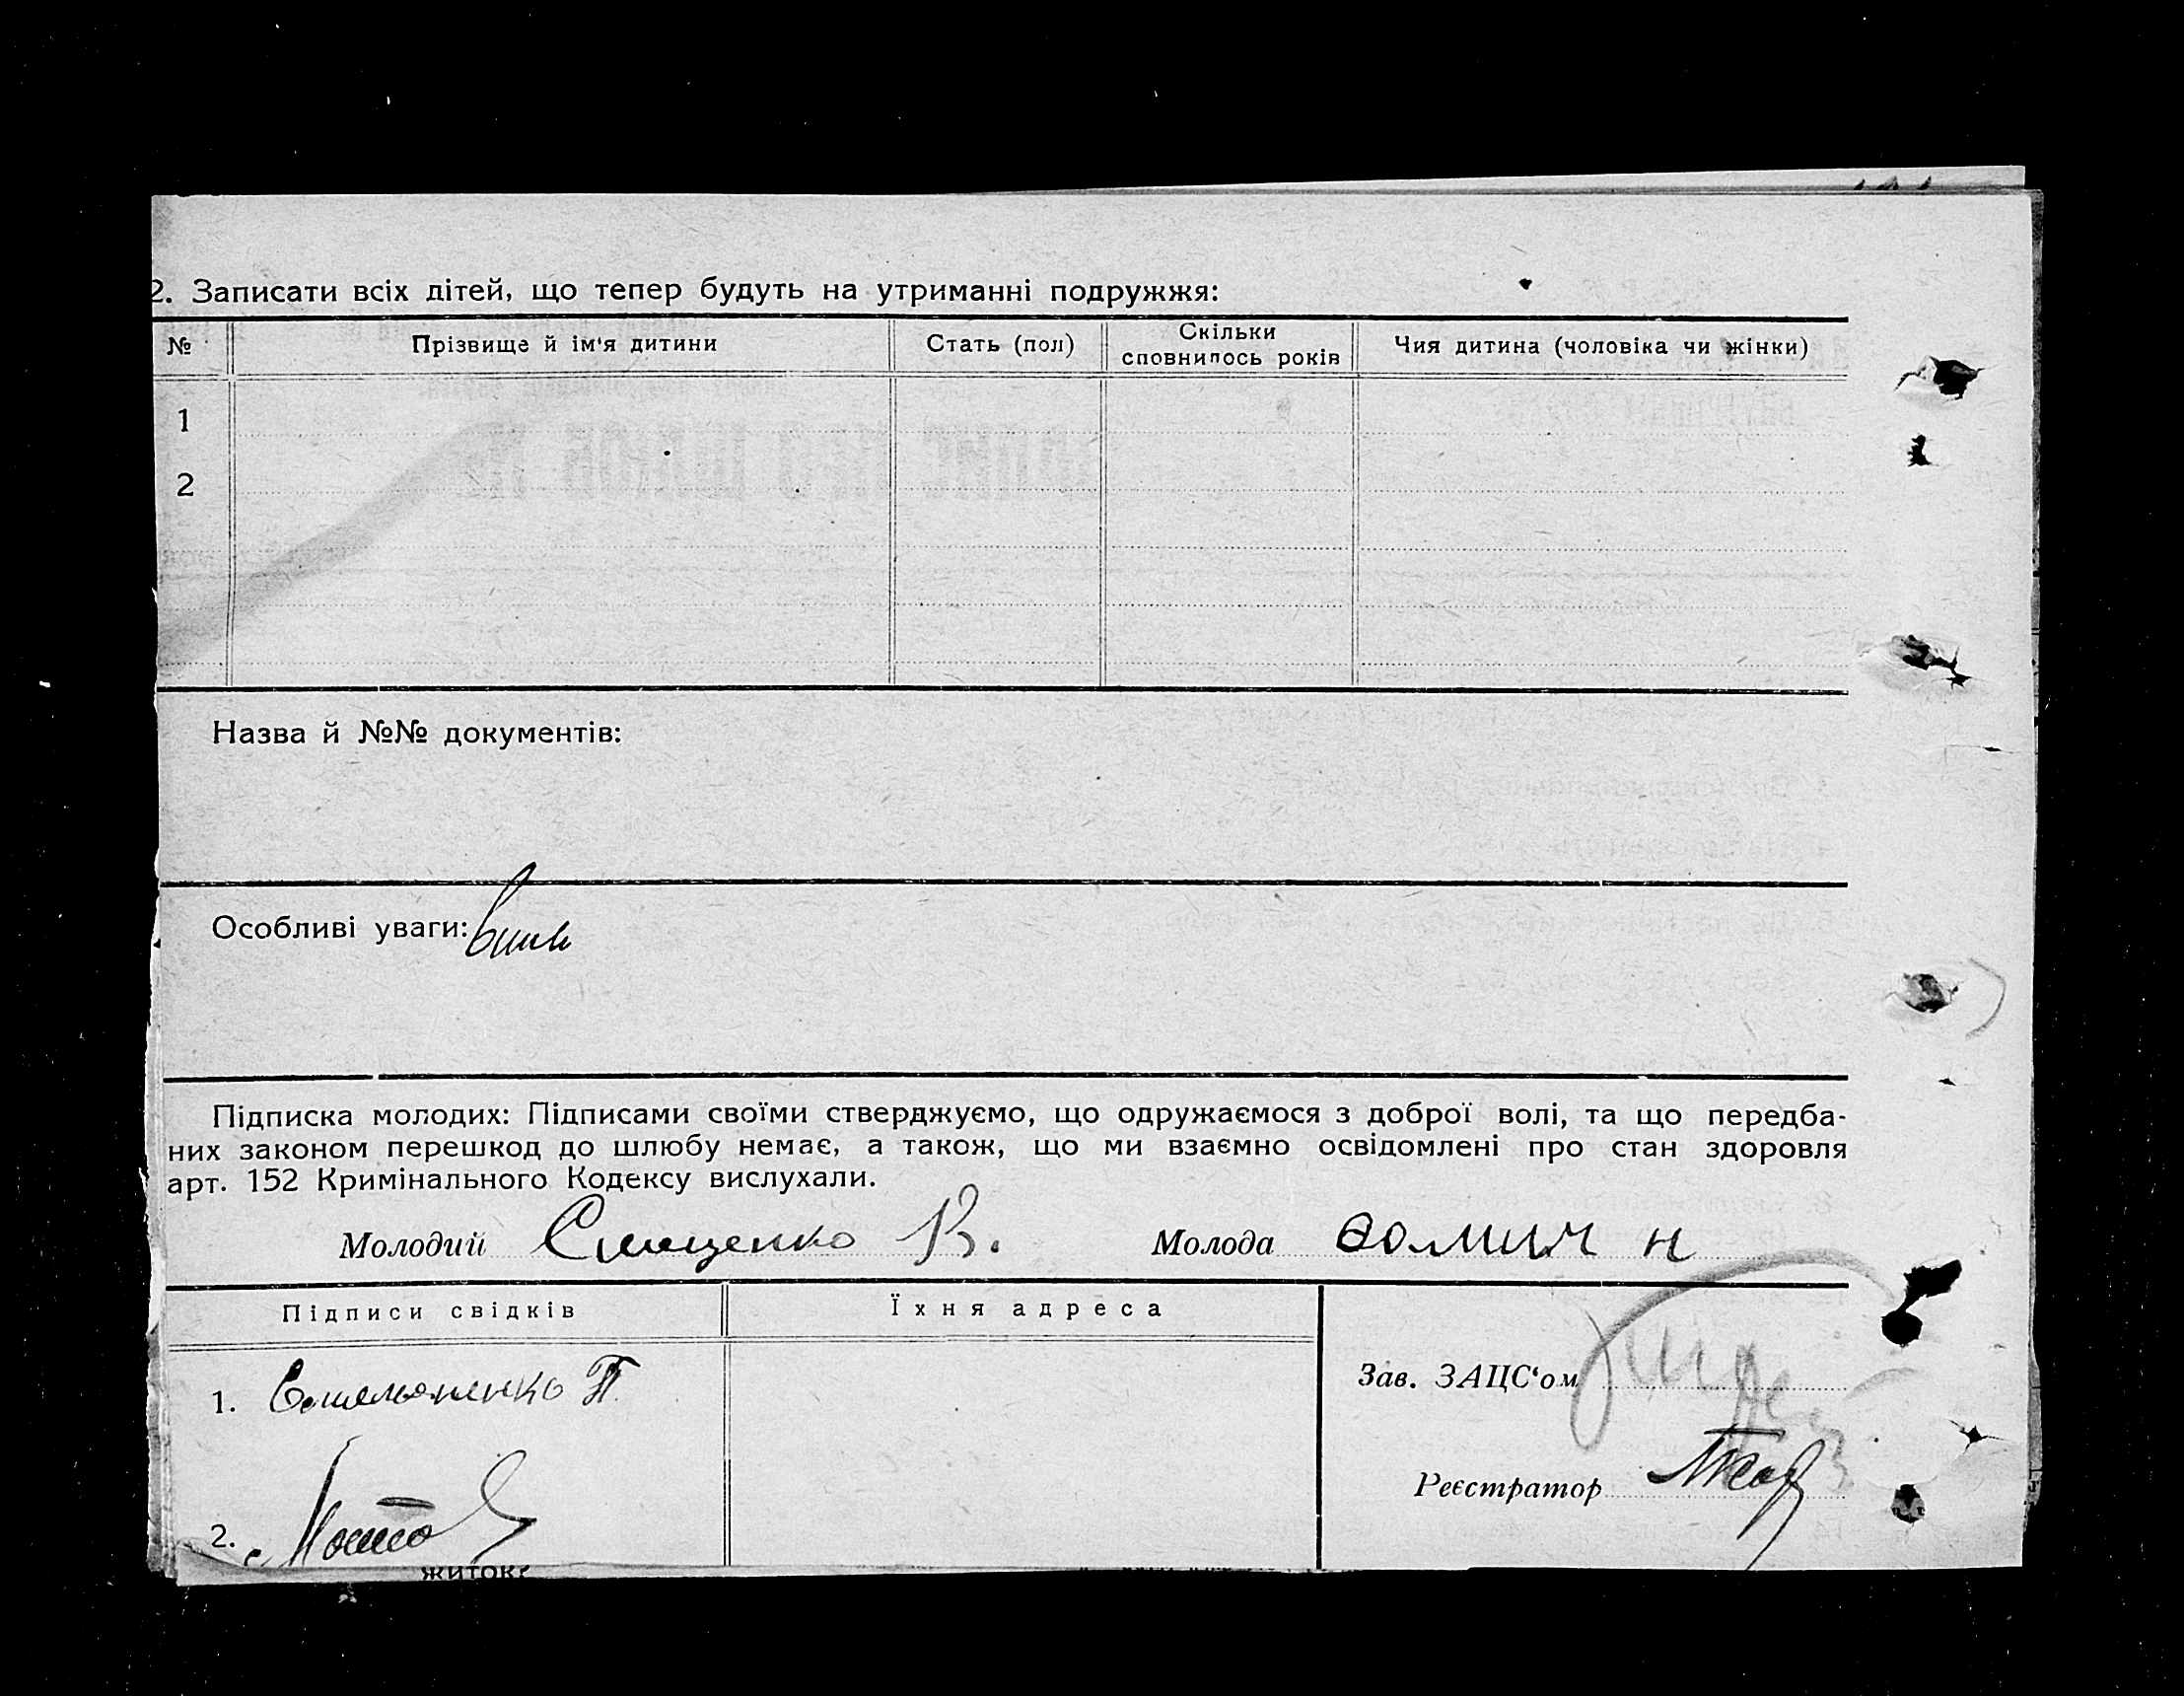 2. Записати всіх дітей, що тепер будуть на утриманні подружжя:
№ Прізвище й ім'я дитини Стать (пол) Скільки сповнилось років Чия дитина (чоловіка чи жінки)
1
2
Назва й №№ документів:
Особливі уваги:
Підписка молодих: Підписами своїми стверджуємо, що одружаємося з доброї волі, та що передба-
них законом перешкод до шлюбу немає, а також, що ми взаємно освідомлені про стан здоровля
арт. 152 Кримінального Кодексу вислухали.
Молодий В. Молода н
Підписи свідків Їхня адреса
1. Омельяненко П.
Зав. ЗАЦС'ом
Реєстратор
2.
житок